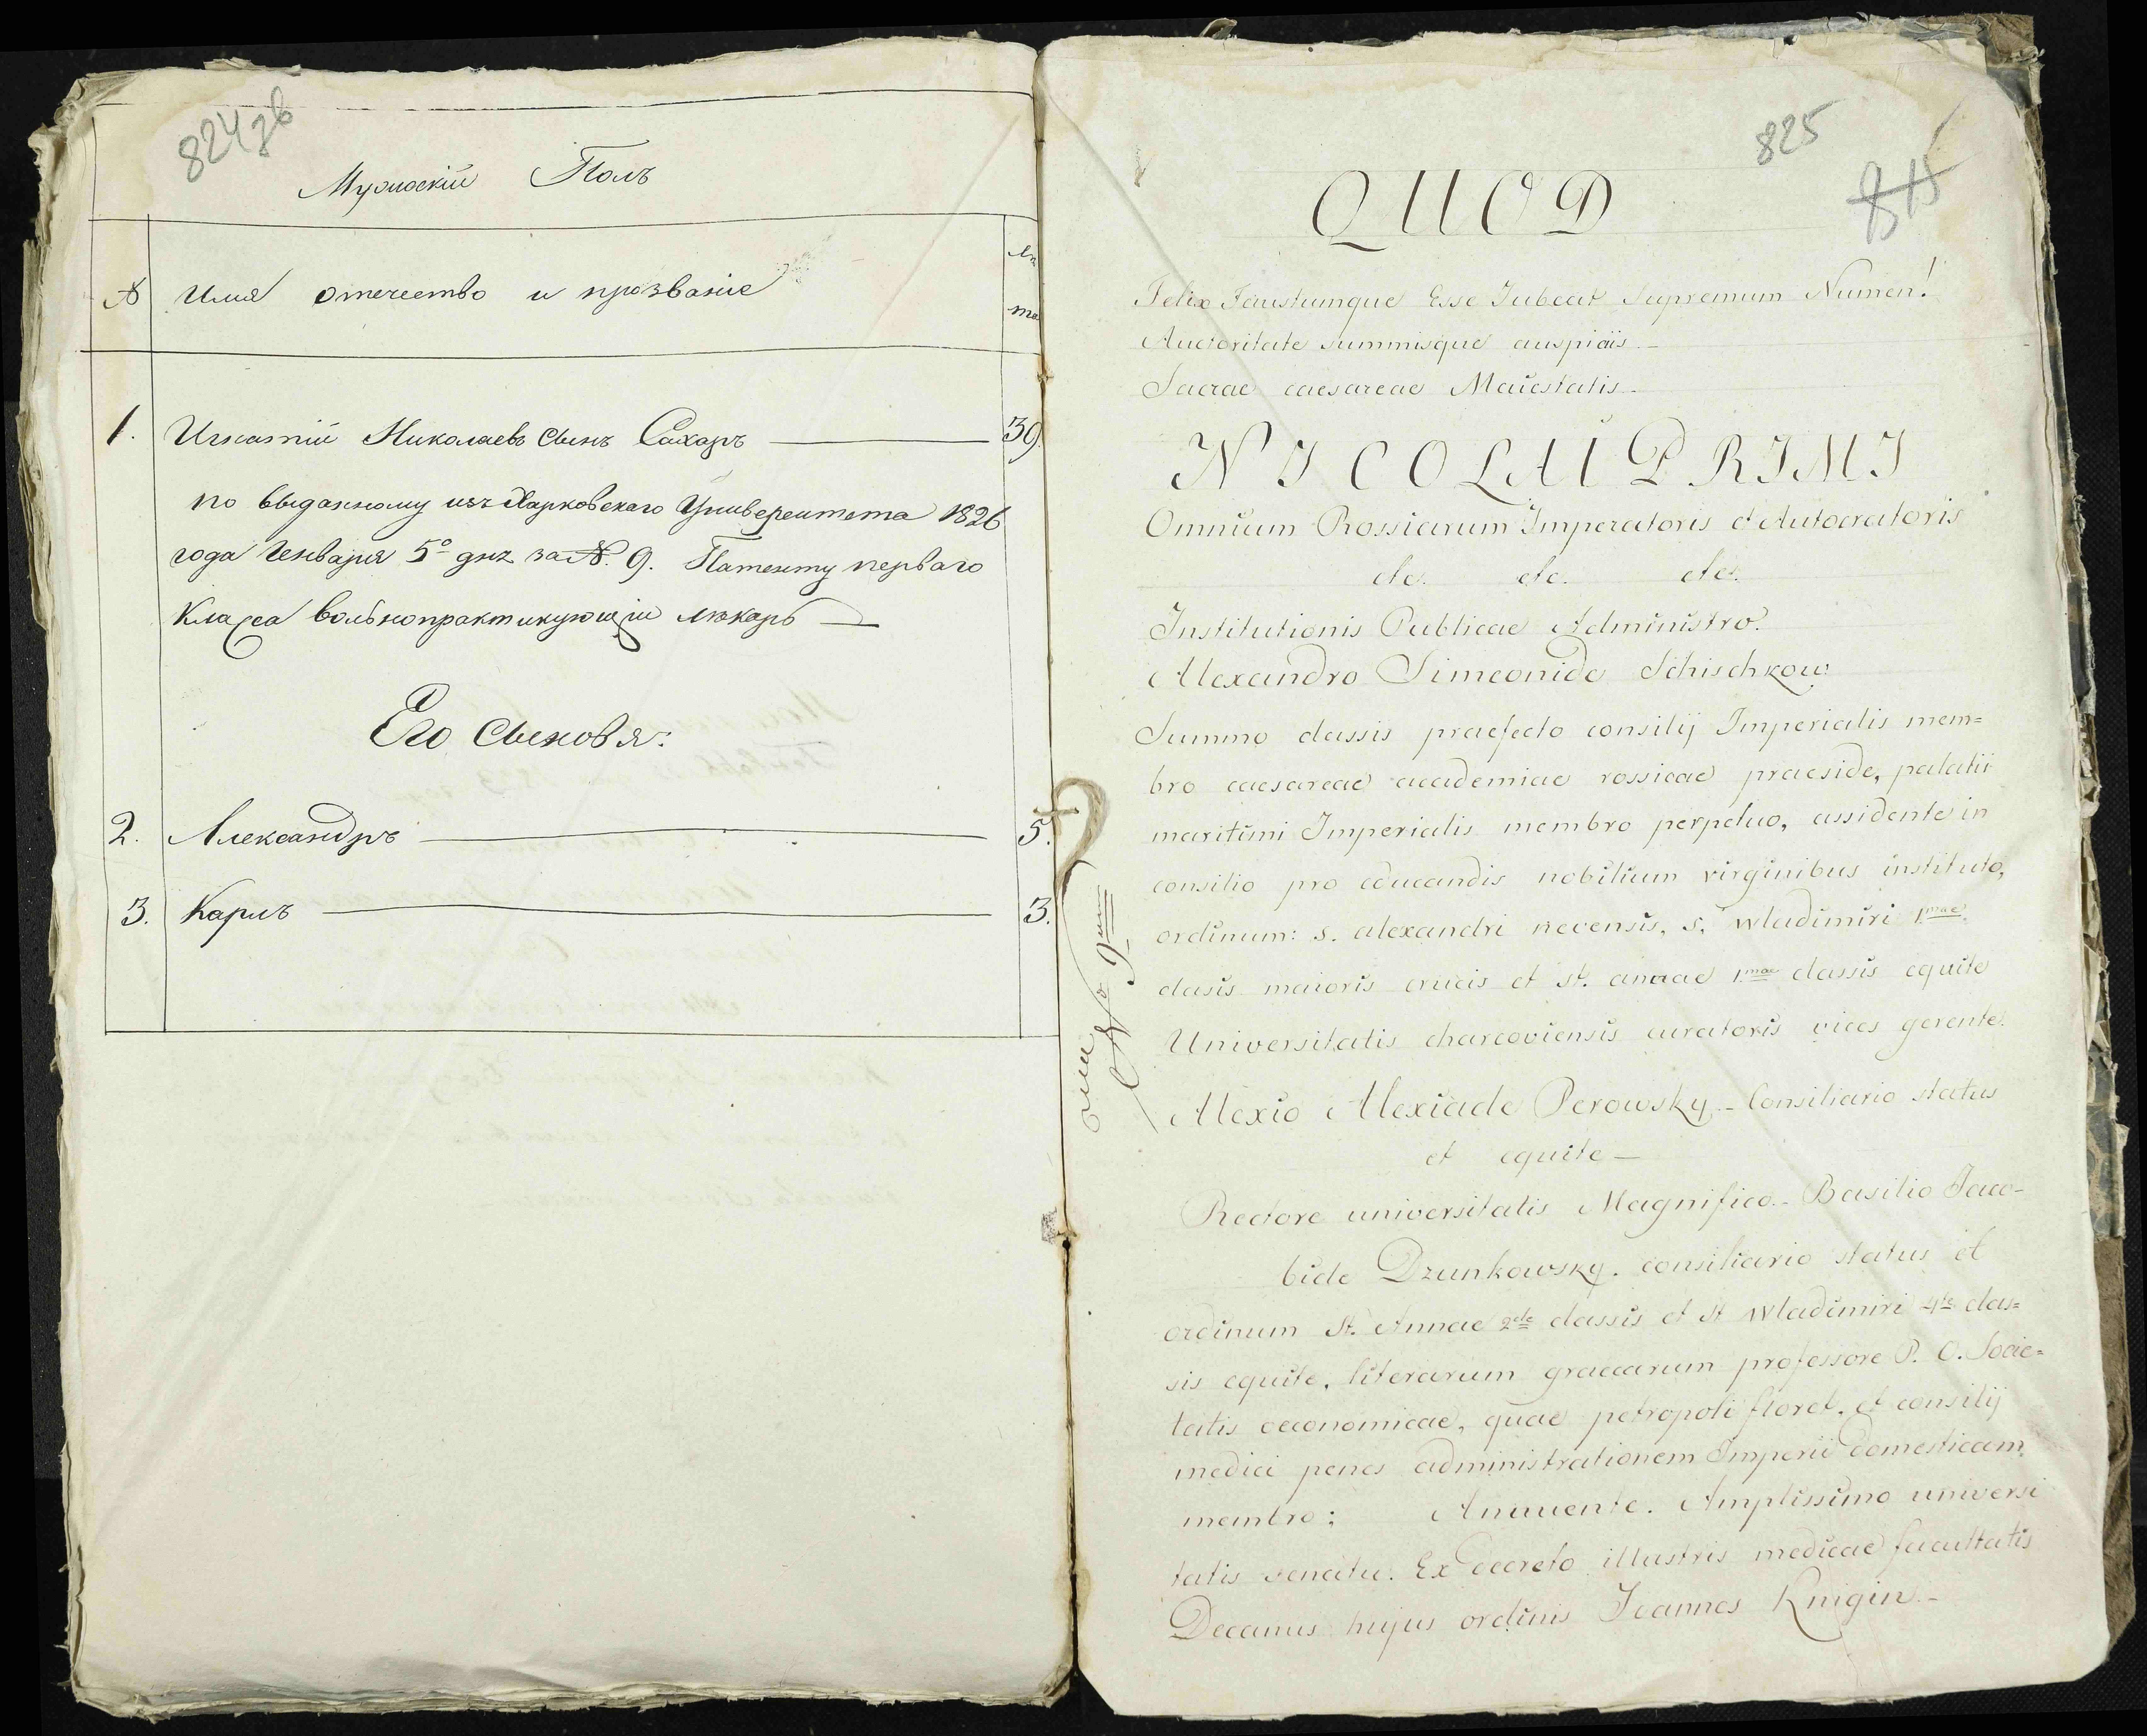 824зв
Мужескій Полъ
№ Имя отчество и прозваніе
1. Игнатій Николаевъ Сынъ Сахаръ 39.
по выданному изъ Харковскаго Университета 1826
года Генваря 5º дня за №. 9. Патенту перваго
Класса вольнопрактикующій лѣкарь
Его Сыновья:
2. Александръ 5.
3. Карлъ 3.
825
815
QUOD
Felix Faustumque Esse Jubeat Supremum Numen!
Auctoritate summisque auspiciis
Sacrae caesareae Maiestatis
NICOLAI PRIMI
Omnium Rossiarum Imperatoris et Autocratoris
etc. etc. etc.
Institutionis Publicae Administro.
Alexandro Simeonide Schischkow
Summo classis praefecto consilij Imperialis mem=
bro caesareae academiae rossicae praeside, palatii
maritimi Imperialis membro perpetuo, assidente in
consilio pro educandis nobilium virginibus instituto,
ordinum: s. alexandri nevensis, s. wladimiri 1mae
clasis maioris crucis et st. annae 1mae classis equite
Universitatis charcoviensis curatoris vices gerente.
Alexio Alexiade Perowsky - Consiliario status
et equite —
Rectore universitatis Magnifico - Basilio Jaco-
bide Dzunkowsky. consiliario status et
ordinum St. Annae 2dae classis et st wladimiri 4te clas=
sis equite, literarum graecarum professore P. O. Socie=
tatis oeconomicae, quae petropoli floret, et consilij
medici penes administrationem Imperii domesticam
membro; Annuente. Amplissimo universi
tatis senatu. Ex decreto illustris medicae facultatis
Decanus hujus ordinis Joannes Knigin.-